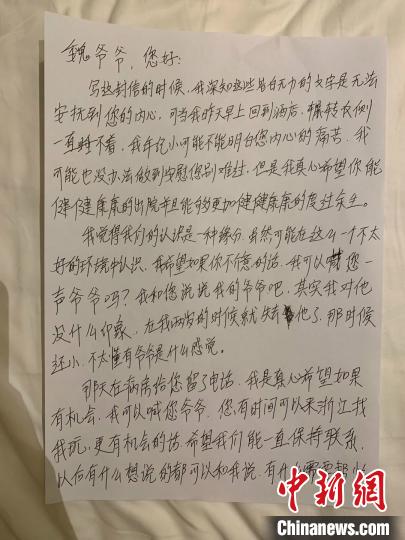 魏爷爷，您好：
写这封信的时候，我深知这些苍白无力的文字是无法
安抚到您的内心，可当我昨天早上回到酒店，辗转反侧
一直睡不着，我年纪小可能不能明白您内心的痛苦，我
可能也没办法做到安慰您别难过，但是我真心希望你能
健健康康的出院并且能够更加健健康康的度过余生。
我觉得我们的认识是一种缘分，虽然可能在这么一个不太
好的环境中认识，我希望如果你不介意的话，我可以喊您一
声爷爷吗？我和您说说我的爷爷吧，其实我对他
没什么印象，在我两岁的时候就失去他了，那时候
还小，不太懂有爷爷是什么感觉。
那天在病房给您留了电话，我是真心希望如果
有机会，我可以喊你爷爷，您有时间可以来浙江找
我玩，更有机会的话希望我们能一直保持联系，
以后有什么想说的都可以和我说，有什么需要帮
中新网
Chinanews.com